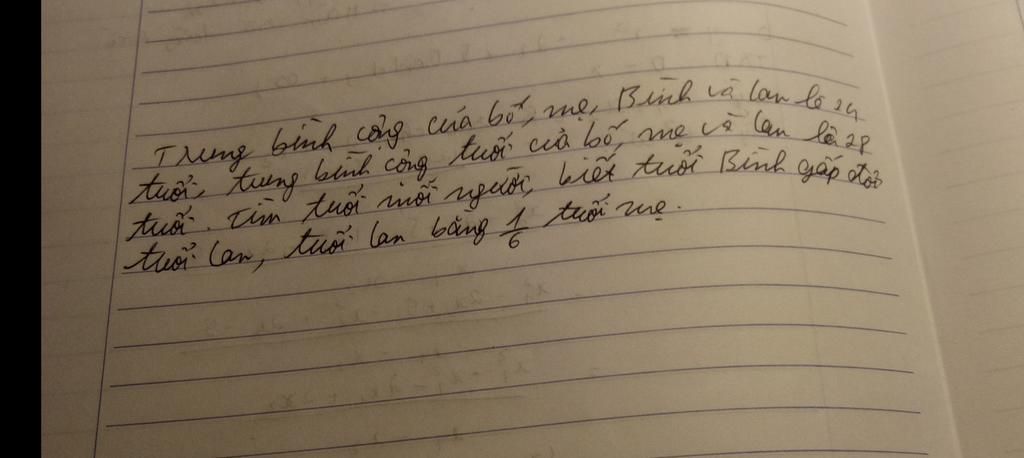 Trung bình cộng của bố, mẹ, Bình và lan là 24
tuổi, tung bình cộng tuổi của bố, mẹ và lan là 28
tuổi. Tìm tuổi mỗi người, biết tuổi Bình gấp đôi
tuổi lan, tuổi lan bằng 1/6 tuổi mẹ.